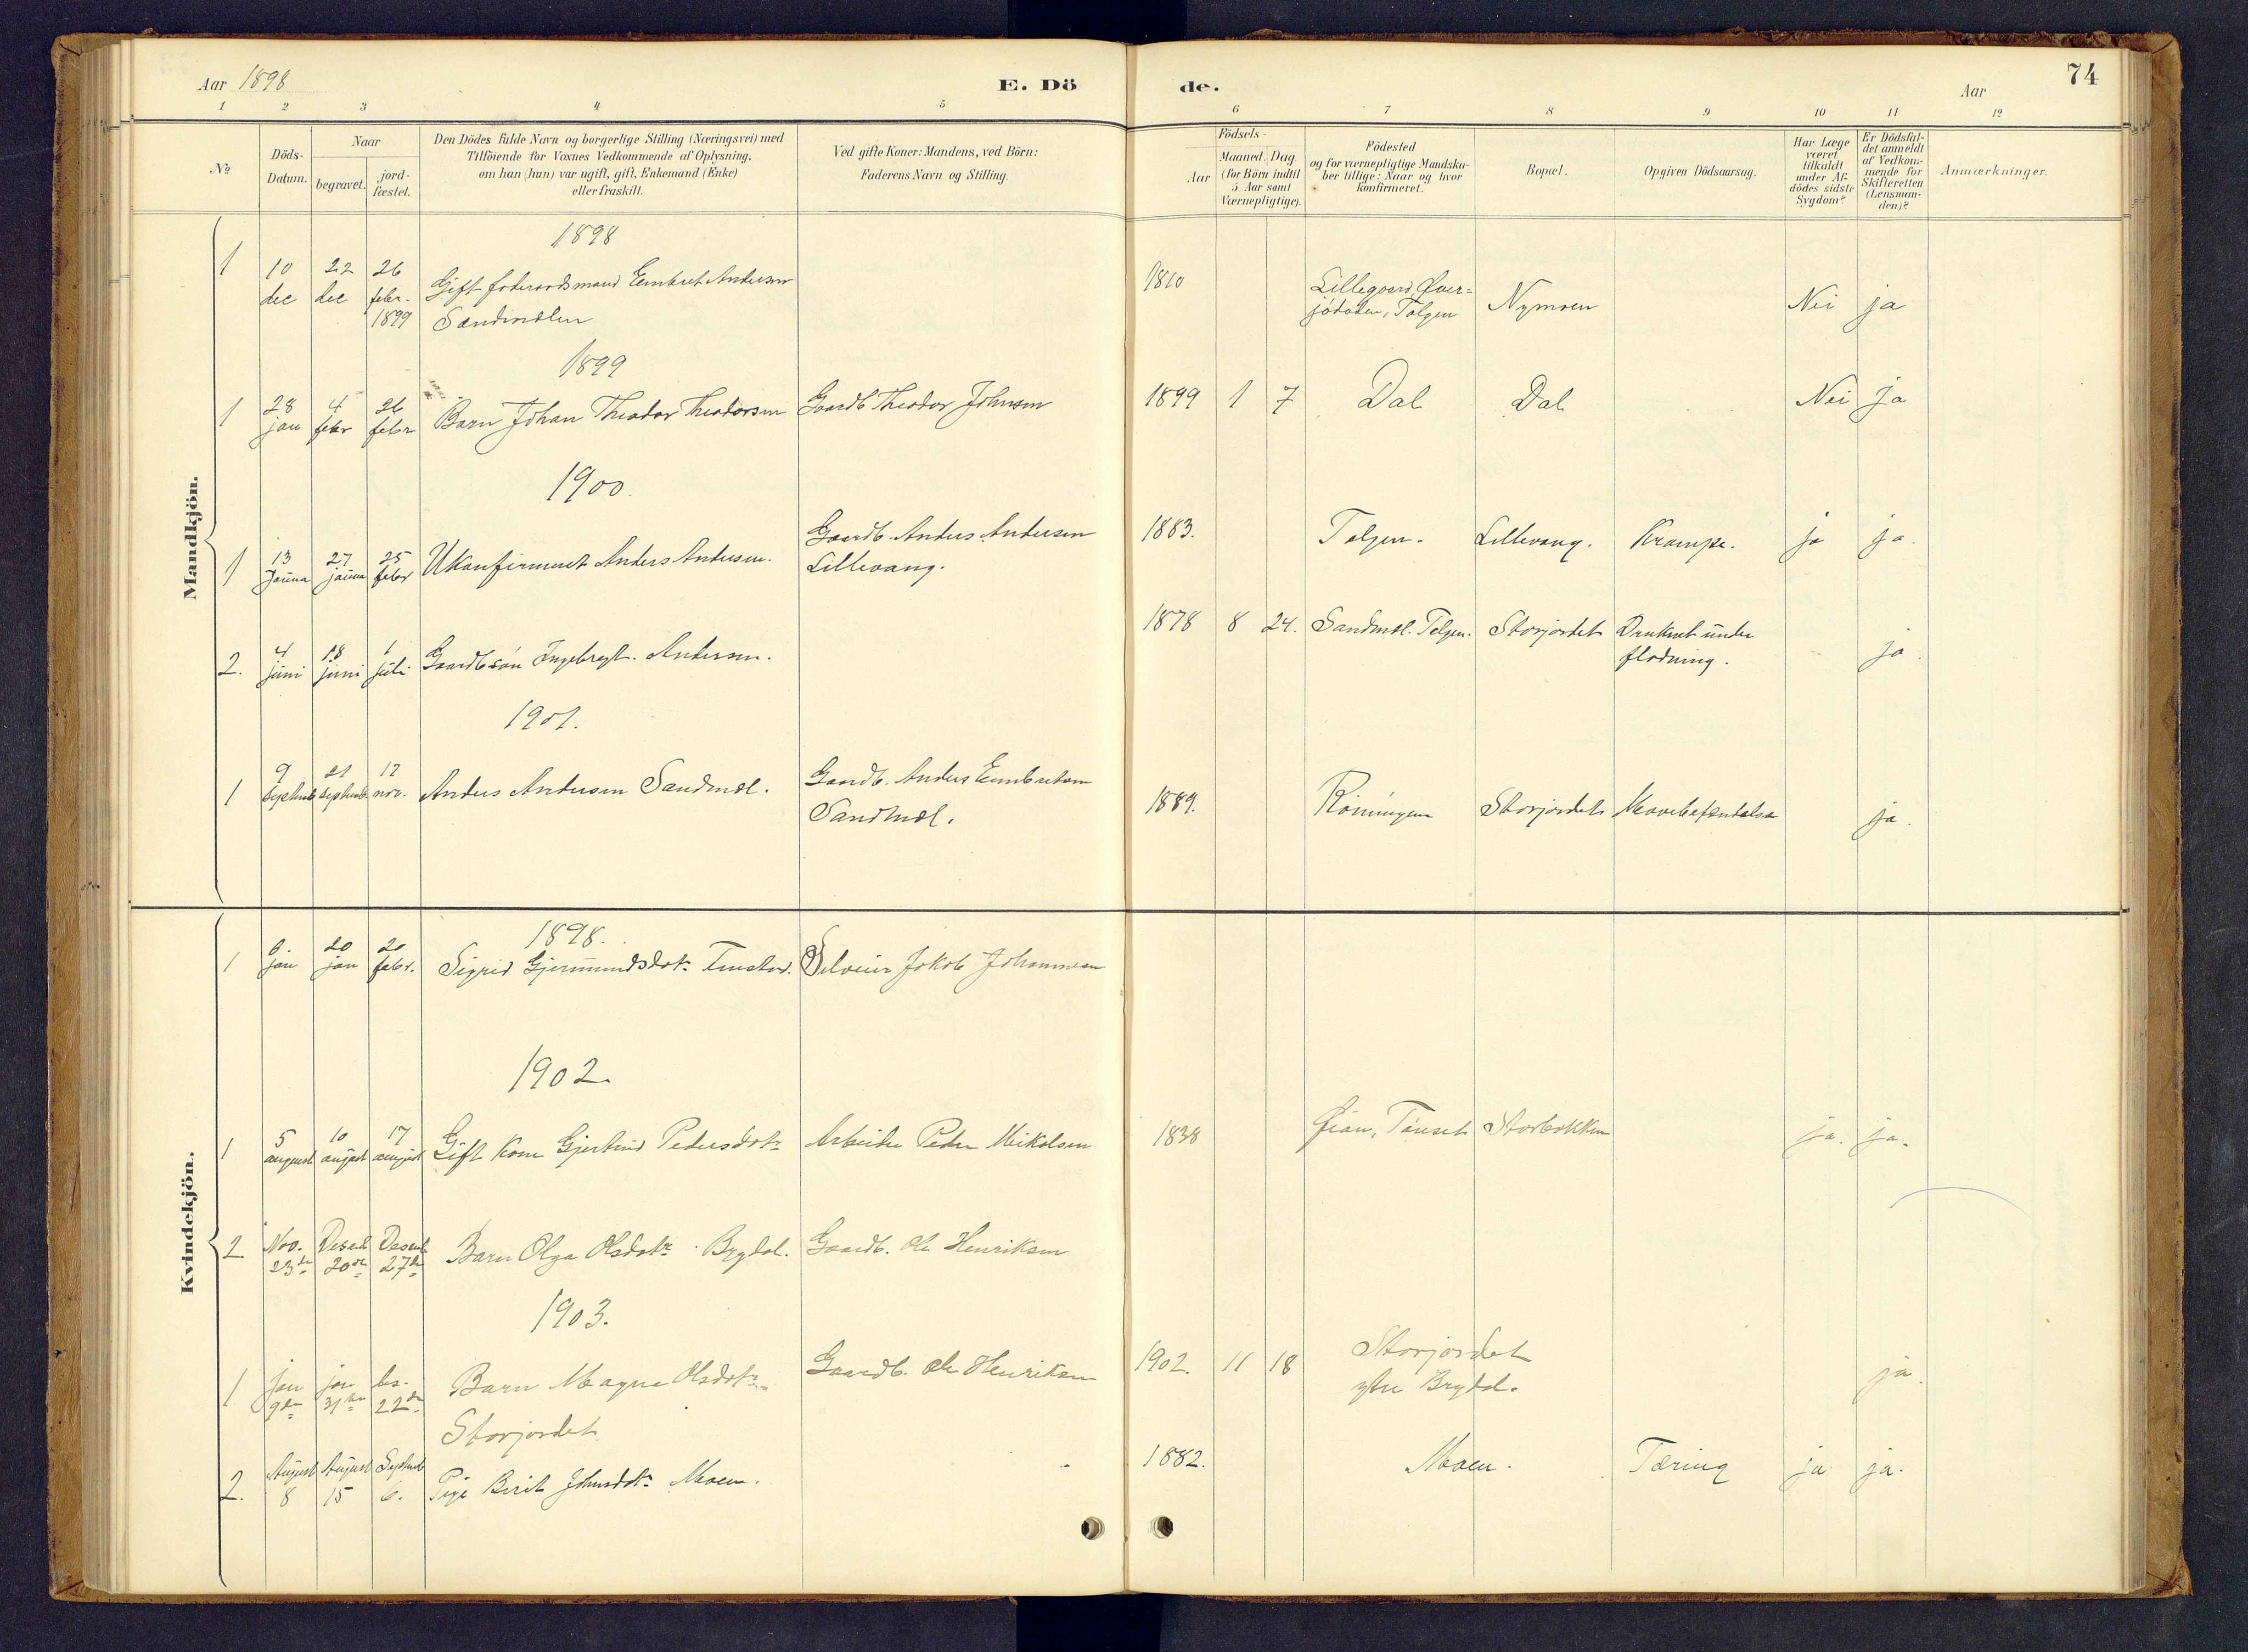 Aar 1898
E. Dö
de.
Aar
74
1 2 3 4 5 6 7 8 9 10 11 12
No
Döds-
Datum.
Naar
begravet.
jord-
fæstet.
Den Dödes fulde Navn og borgerlige Stilling (Næringsvei) med
Tilföiende for Voxnes Vedkommende af Oplysning,
om han (hun) var ugift, gift, Enkemand (Enke)
eller fraskilt.
Ved gifte Koner: Mandens, ved Börn:
Faderens Navn og Stilling.
Födsels-
Aar
Maaned. Dag
(for Börn indtil
5 Aar samt
Værnepligtige).
Födested
og for værnepligtige Mandska-
ber tillige: Naar og hvor
konfirmeret.
Bopæl.
Opgiven Dödsaarsag.
Har Læge
været
tilkaldt
under Af-
dödes sidste
Sygdom?
Er Dödsfal-
det anmeldt
af Vedkom-
mende for
Skifteretten
(Lensman-
den)?
Anmærkninger.
Mandkjön.
1898
1 10 22 26 1810
dec dec febr. Gift Embret Andersen Lillegaard, Øver-
1899 Sandmælen Tolgen Nymoen Nei ja
1899
1 28 4 26 Barn Johan Theodor Theodorsen Gaardb Theodor Johnsen 1899 1 7 Dal Dal Nei ja
jan febr febr
1900.
Gaardb. Anders Andersen 1883. Tolgen. Lillevang. Krampe. ja ja.
1 13 27 25 Ukonfirmeret Anders Andersen. Lillevang.
Janua janua febr
1878 8 24. Sandmæl. Tolgen. Storjordet Druknet under
2. 4 18 1 Gaardbsøn Ingebregt. Andersen. flødning. ja.
juni juni juli
1901.
1 9 21 17 Anders Andersen Sandmæl. Gaardb. Anders Embretsen 1889. Röningen Storjordet ja.
Septemb septemb. nov. Sandmæl.
Kvindekjön.
1898.
1 6. 20 20 Sigrid Gjermundsdotr Selveier Jakob Johannesen
jan jan febr.
1902.
1 5 10 17 Gift Kone Gjertrud Pedersdotr Arbeider Peder Mikalsen 1838 Øian, Tönset Storbækken ja. ja.
august august august
2 Nov. Desemb Desemb Barn Olga Olsdotr. Brydal. Gaardb. Ole Henriksen
23de 20de 27de
1903.
1 jan jan Barn Magna Olsdotr Gaardb. Ole Henriksen 1902. 11 18 Storjordet
9de 31te 22de Storjordet ytre Brydal. ja.
2. August August Septemb Pige Berit Johnsdotr Moen. 1882. Moen. Tæring ja ja.
8 15 6.